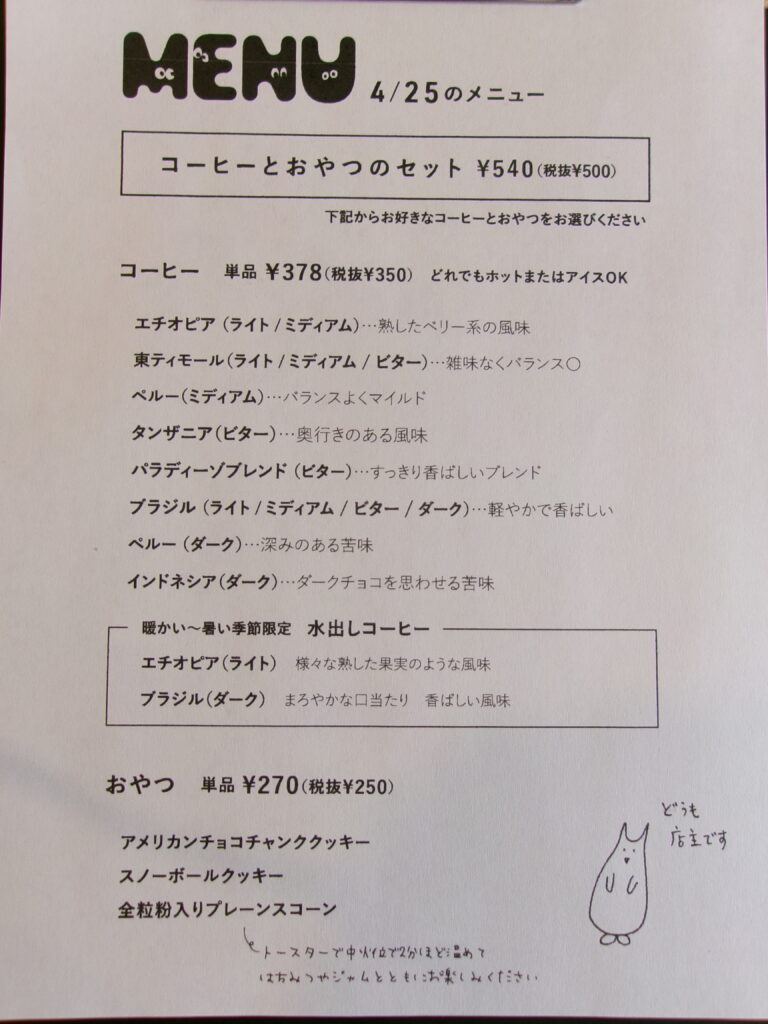 MENU 4/25のメニュー
コーヒーとおやつのセット ¥540(税抜¥500)
下記からお好きなコーヒーとおやつをお選びください
コーヒー 単品 ¥378(税抜¥350) どれでもホットまたはアイスOK
エチオピア (ライト / ミディアム)…熟したベリー系の風味
東ティモール(ライト / ミディアム / ビター)…雑味なくバランス〇
ペルー(ミディアム)…バランスよくマイルド
タンザニア(ビター)…奥行きのある風味
パラディーゾブレンド (ビター)…すっきり香ばしいブレンド
ブラジル (ライト / ミディアム / ビター / ダーク)…軽やかで香ばしい
ペルー (ダーク)…深みのある苦味
インドネシア(ダーク)…ダークチョコを思わせる苦味
暖かい～暑い季節限定 水出しコーヒー
エチオピア(ライト) 様々な熟した果実のような風味
ブラジル(ダーク) まろやかな口当たり 香ばしい風味
おやつ 単品 ¥270(税抜¥250)
アメリカンチョコチャンククッキー
スノーボールクッキー
全粒粉入りプレーンスコーン
どうも
店主です
トースターで中火位で2分ほど温めて
はちみつやジャムとともにお楽しみください